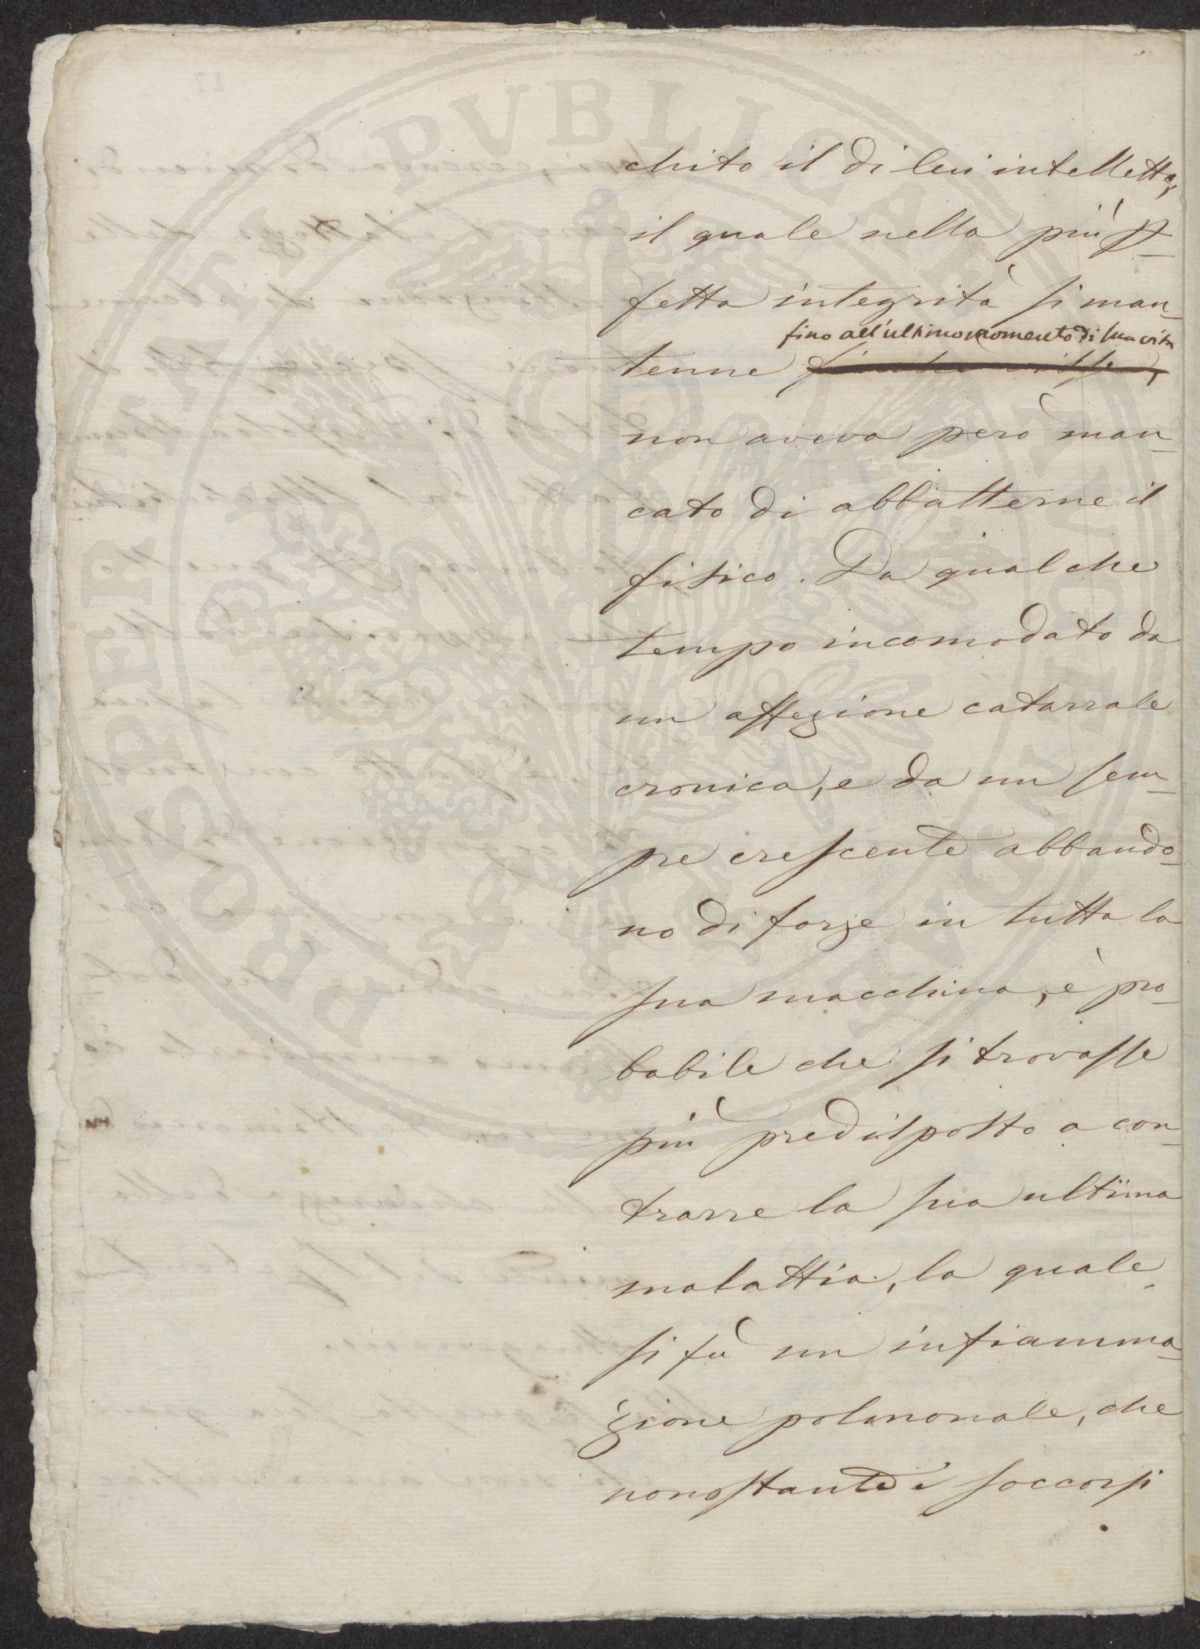 chito il di lui intelletto,
il quale nella più p
fetta integrità si man_
fino all'ultimo momento di sua vita
tenne
non aveva però man_
cato di abbatterne il
fisico. Da qualche
tempo incomodato da
un affezione catarrale
cronica, e da un sem_
pre crescente abbando_
no di forze in tutta la
sua macchina, è pro_
babile che si trovasse
più predisposto a con_
trarre la sua ultima
malattia, la quale
si fù un infiamma_
zione polmonale, che
nonostante i soccorsi